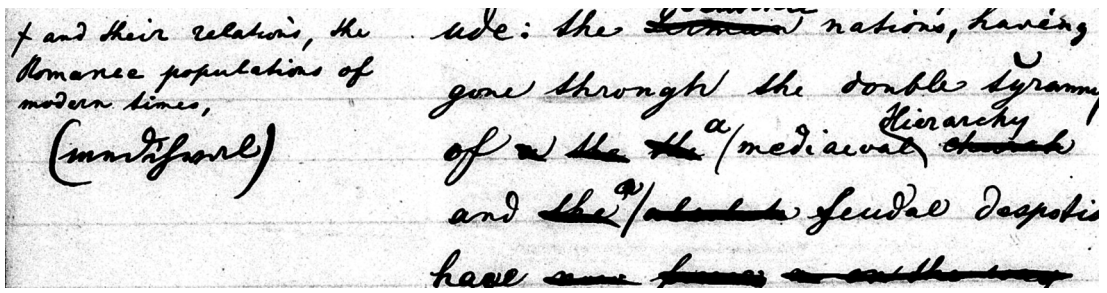 + and their relations, the
Romance populations of
modern times,
ude: the nations, having
gone through the double tyranny
of a the the a mediaeval Hierarchy church
and the a absolute feudal despotis
have